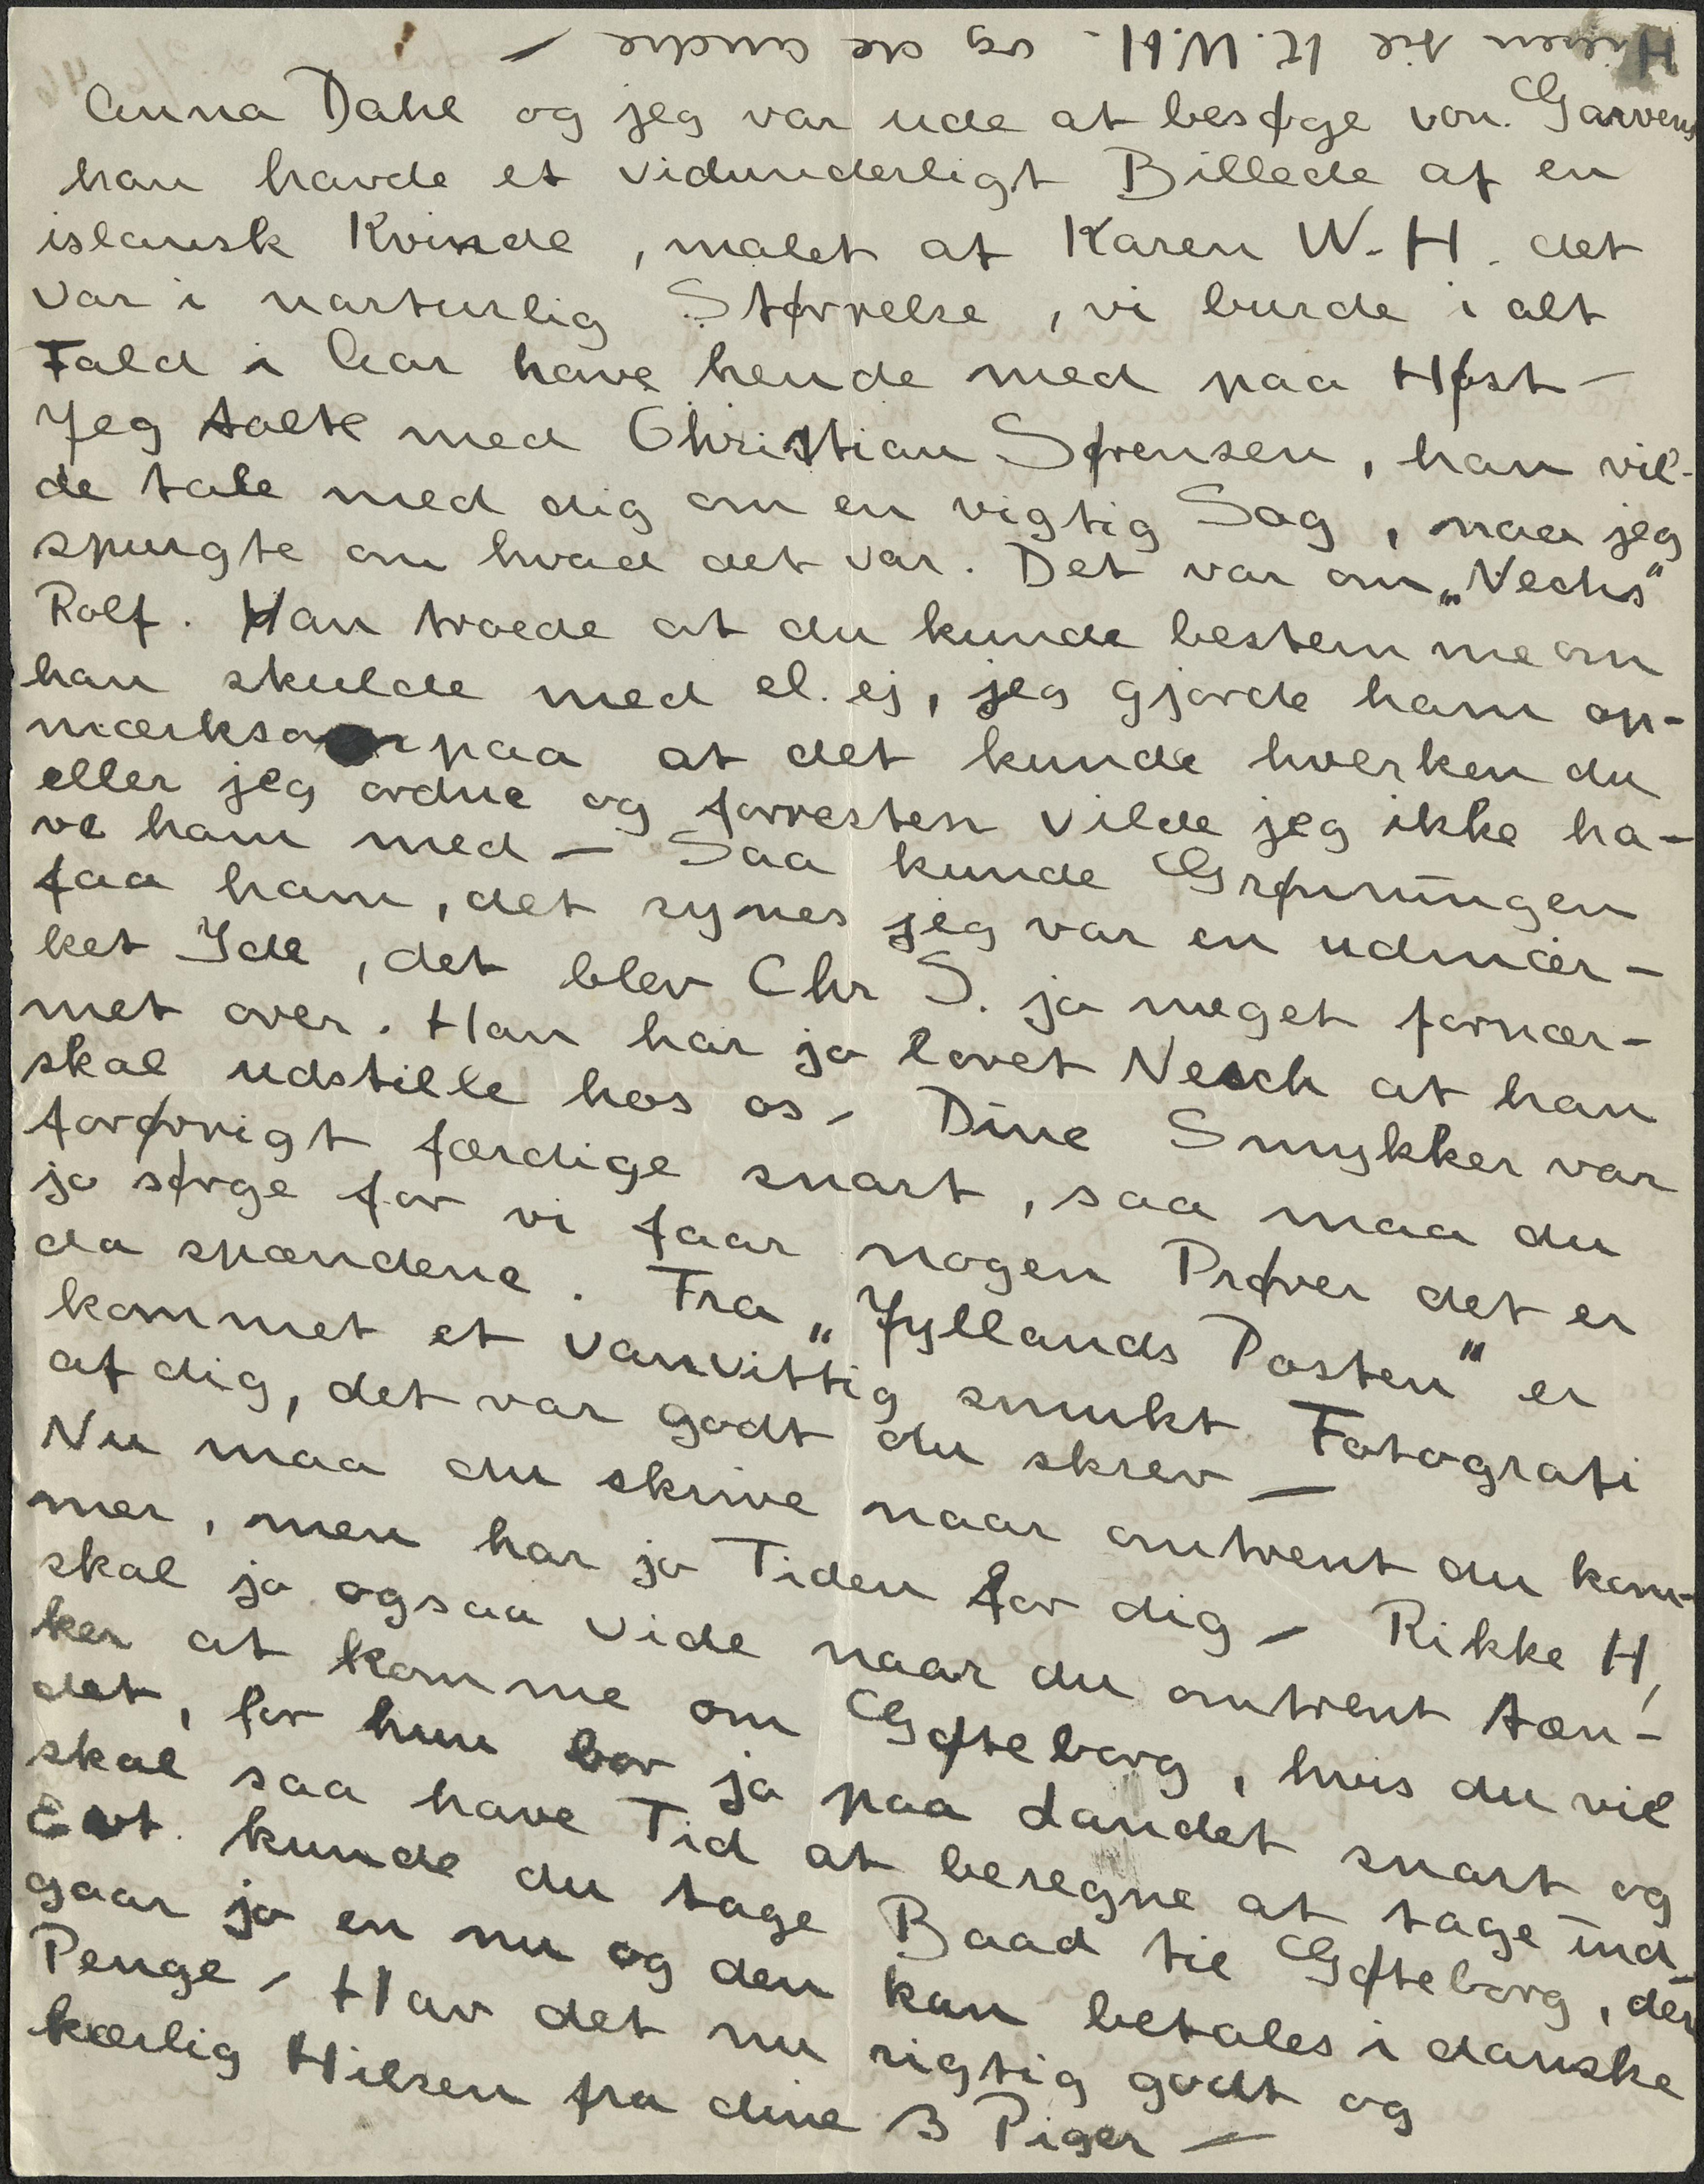 Hilsen til K.W.H. og de andre –
Anna Dahl og jeg var ude at besøge von Garvens
han havde et vidunderligt Billede af en
islansk Kvinde, malet af Karen W.H. det
var i narturlig Størrelse, vi burde i alt
Fald i Aar have hende med paa Høst –
Jeg talte med Christian Sørensen, han vil-
de tale med dig om en vigtig Sag, naa jeg
spurgte om hvad det var. Det var om „Nechs"
Rolf. Han troede at du kunde bestemme om
han skulde med el. ej, jeg gjorde ham op-
mærksom paa at det kunde hverken du
eller jeg ordne og forresten vilde jeg ikke ha-
ve ham med – Saa kunde Grønningen
faa ham, det synes jeg var en udmær-
ket Ide, det blev Chr S. ja meget fornær-
met over. Han har jo lovet Nesch at han
skal udstille hos os – Dine Smykker var
forøvrigt færdige snart, saa maa du
jo sørge for vi faar nogen Prøver det er
da spændene. Fra „Jyllands Posten" er
kommet et vanvittig smukt Fotografi
af dig, det var godt du skrev –
Nu maa du skrive naar omtrent du kom-
mer, men har jo Tiden for dig – Rikke H,
skal jo ogsaa vide naar du omtrent tæn-
ker at komme om Gøteborg, hvis du vil
det, for hun bor jo paa Landet snart og
skal saa have Tid at beregne at tage ind –
Evt. kunde du tage Baad til Gøteborg, der
gaar jo en nu og den kan betales i danske
Penge – Hav det nu rigtig godt og
kærlig Hilsen fra dine 3 Piger –